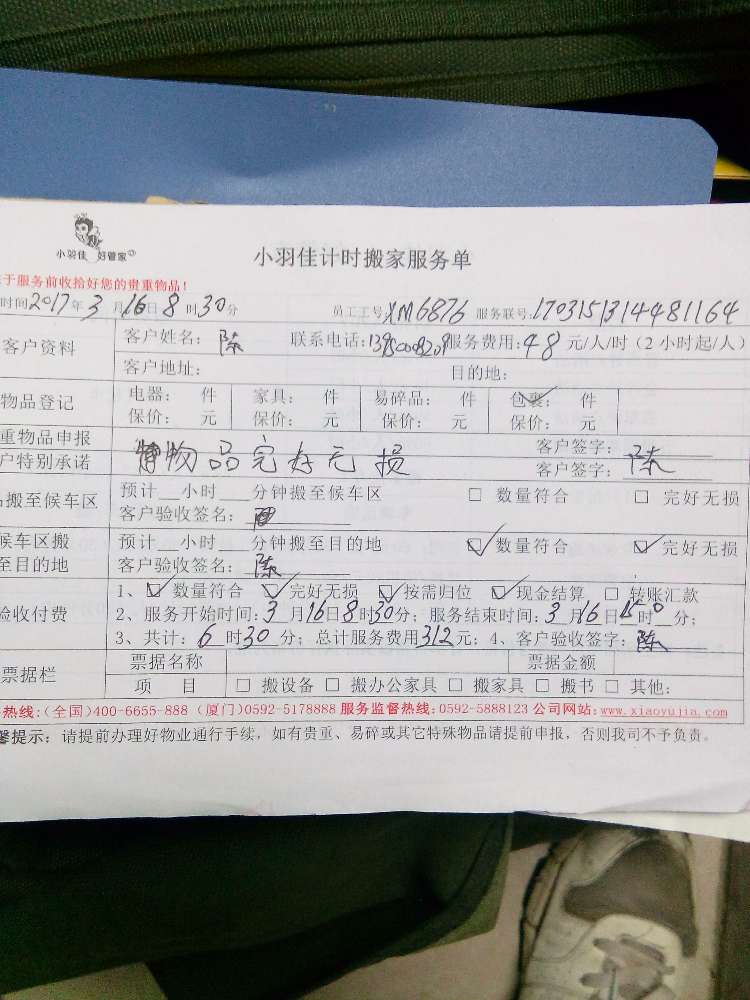 小羽佳 好管家
小羽佳计时搬家服务单
于服务前收拾好您的贵重物品！
时间2017年3月16日8时30分 员工工号XM6876 服务联号:1703151314481164
客户资料 客户姓名：陈 联系电话: 服务费用:48元/人/时（2小时起/人）
客户地址： 目的地：
物品登记 电器： 件 家具： 件 易碎品： 件 包裹： 件
保价： 元 保价： 元 保价： 元 保价： 元
重物品申报 客户签字：陈
户特别承诺 物品完好无损 客户签字：
搬至候车区 预计__小时___分钟搬至候车区 □ 数量符合 □ 完好无损
客户验收签名：
候车区搬 预计__小时___分钟搬至目的地 ☑ 数量符合 ☑ 完好无损
至目的地 客户验收签名：陈
验收付费 1、☑ 数量符合 ☑ 完好无损 ☑ 按需归位 ☑ 现金结算 □ 转账汇款
2、服务开始时间:3月16日8时30分；服务结束时间:3月16日15时0分；
3、共计：6时30分；总计服务费用312元；4、客户验收签字：陈
票据栏 票据名称 票据金额
项 目 □ 搬设备 □ 搬办公家具 □ 搬家具 □ 搬书 □ 其他：
热线:(全国)400-6655-888（厦门)0592-5178888 服务监督热线:0592-5888123 公司网站:www.xiaoyujia.com
馨提示：请提前办理好物业通行手续，如有贵重、易碎或其它特殊物品请提前申报，否则我司不予负责。